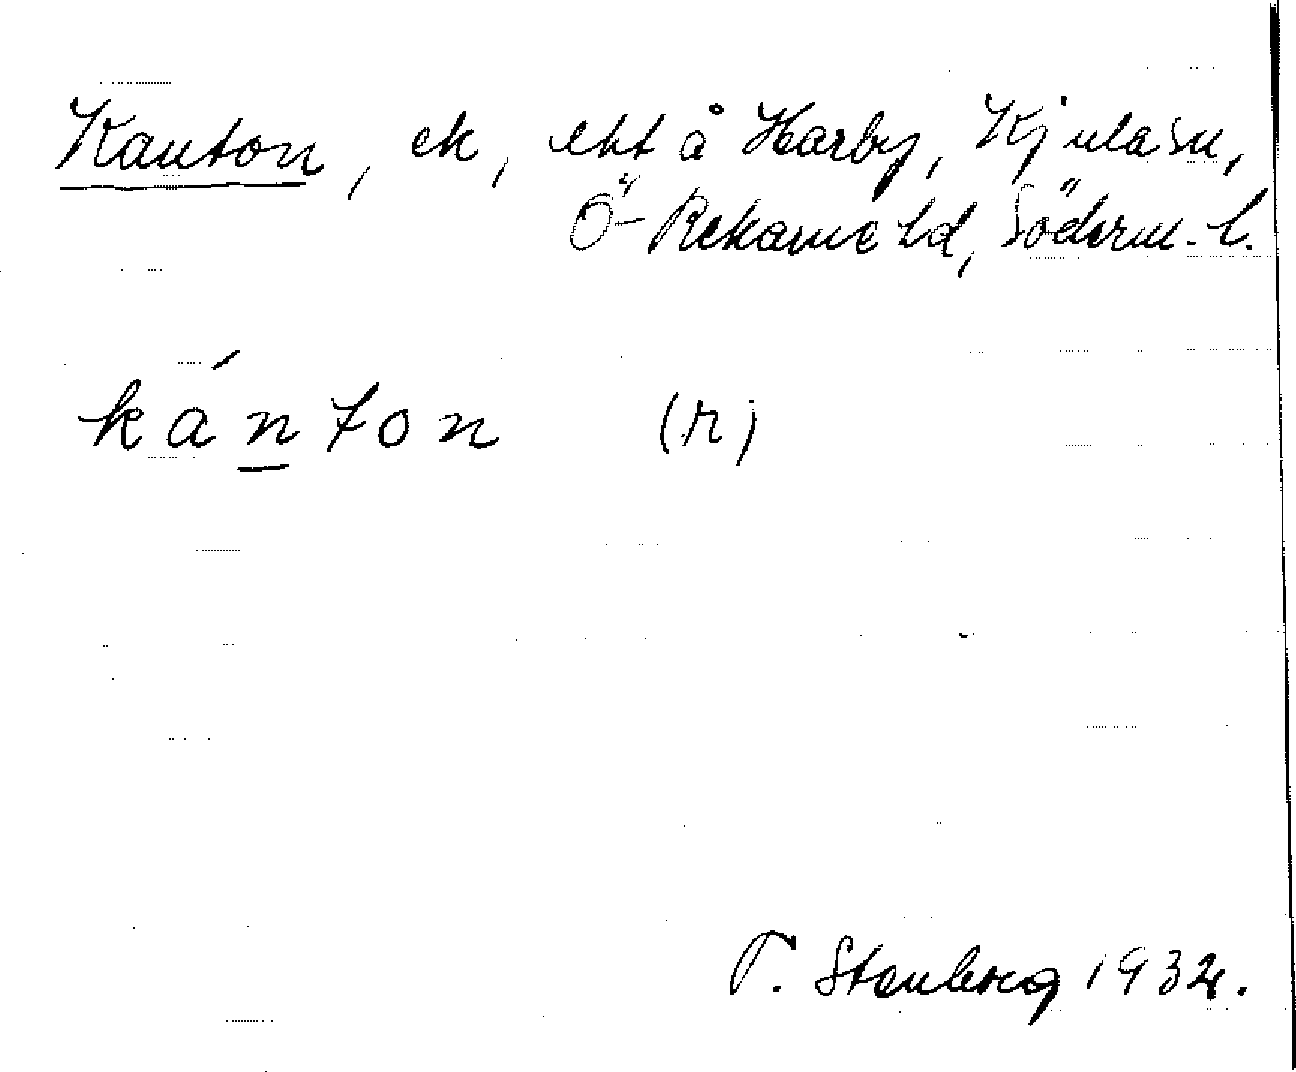 Kanton, ek, ett å Harby, Kjula sn,
Ö-Rekarne hd, Söderm. l.
kánton (r)
T. Stenberg 1932.